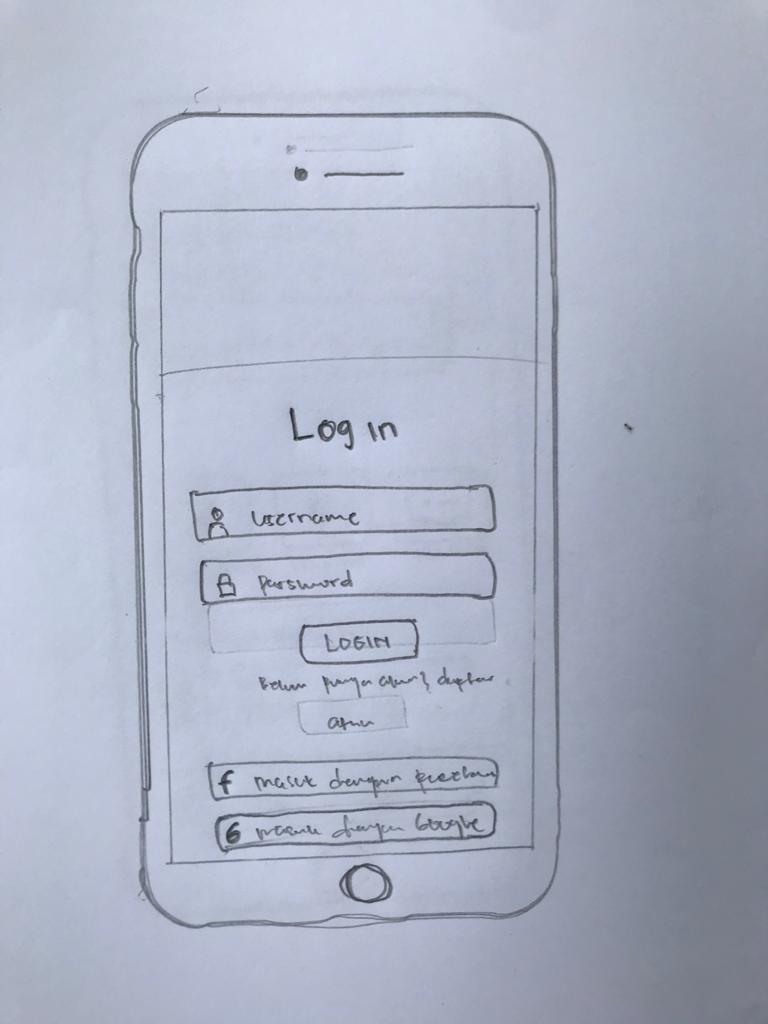 Log in
Username
Password
LOGIN
Belum punya akun? daftar
akun
f masuk dengan facebook
G masuk dengan Google